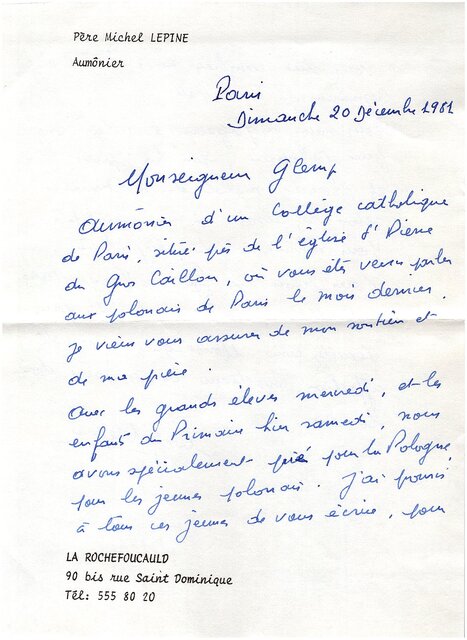 Père Michel LEPINE
Aumônier
Paris
Dimanche 20 Décembre 1981
Monseigneur Glemp
Aumônier d'un collège catholique
de Paris, situé près de l'église St Pierre
du Gros Caillou, où vous êtes venu parler
aux polonais de Paris le mois dernier,
je viens vous assurer de mon soutien et
de ma prière.
Avec les grands élèves mercredi, et les
enfants du Primaire hier samedi, nous
avons spécialement prié pour la Pologne,
pour les jeunes polonais. J'ai promis
à tous ces jeunes de vous écrire, pour
LA ROCHEFOUCAULD
90 bis rue Saint Dominique
Tél: 555 80 20